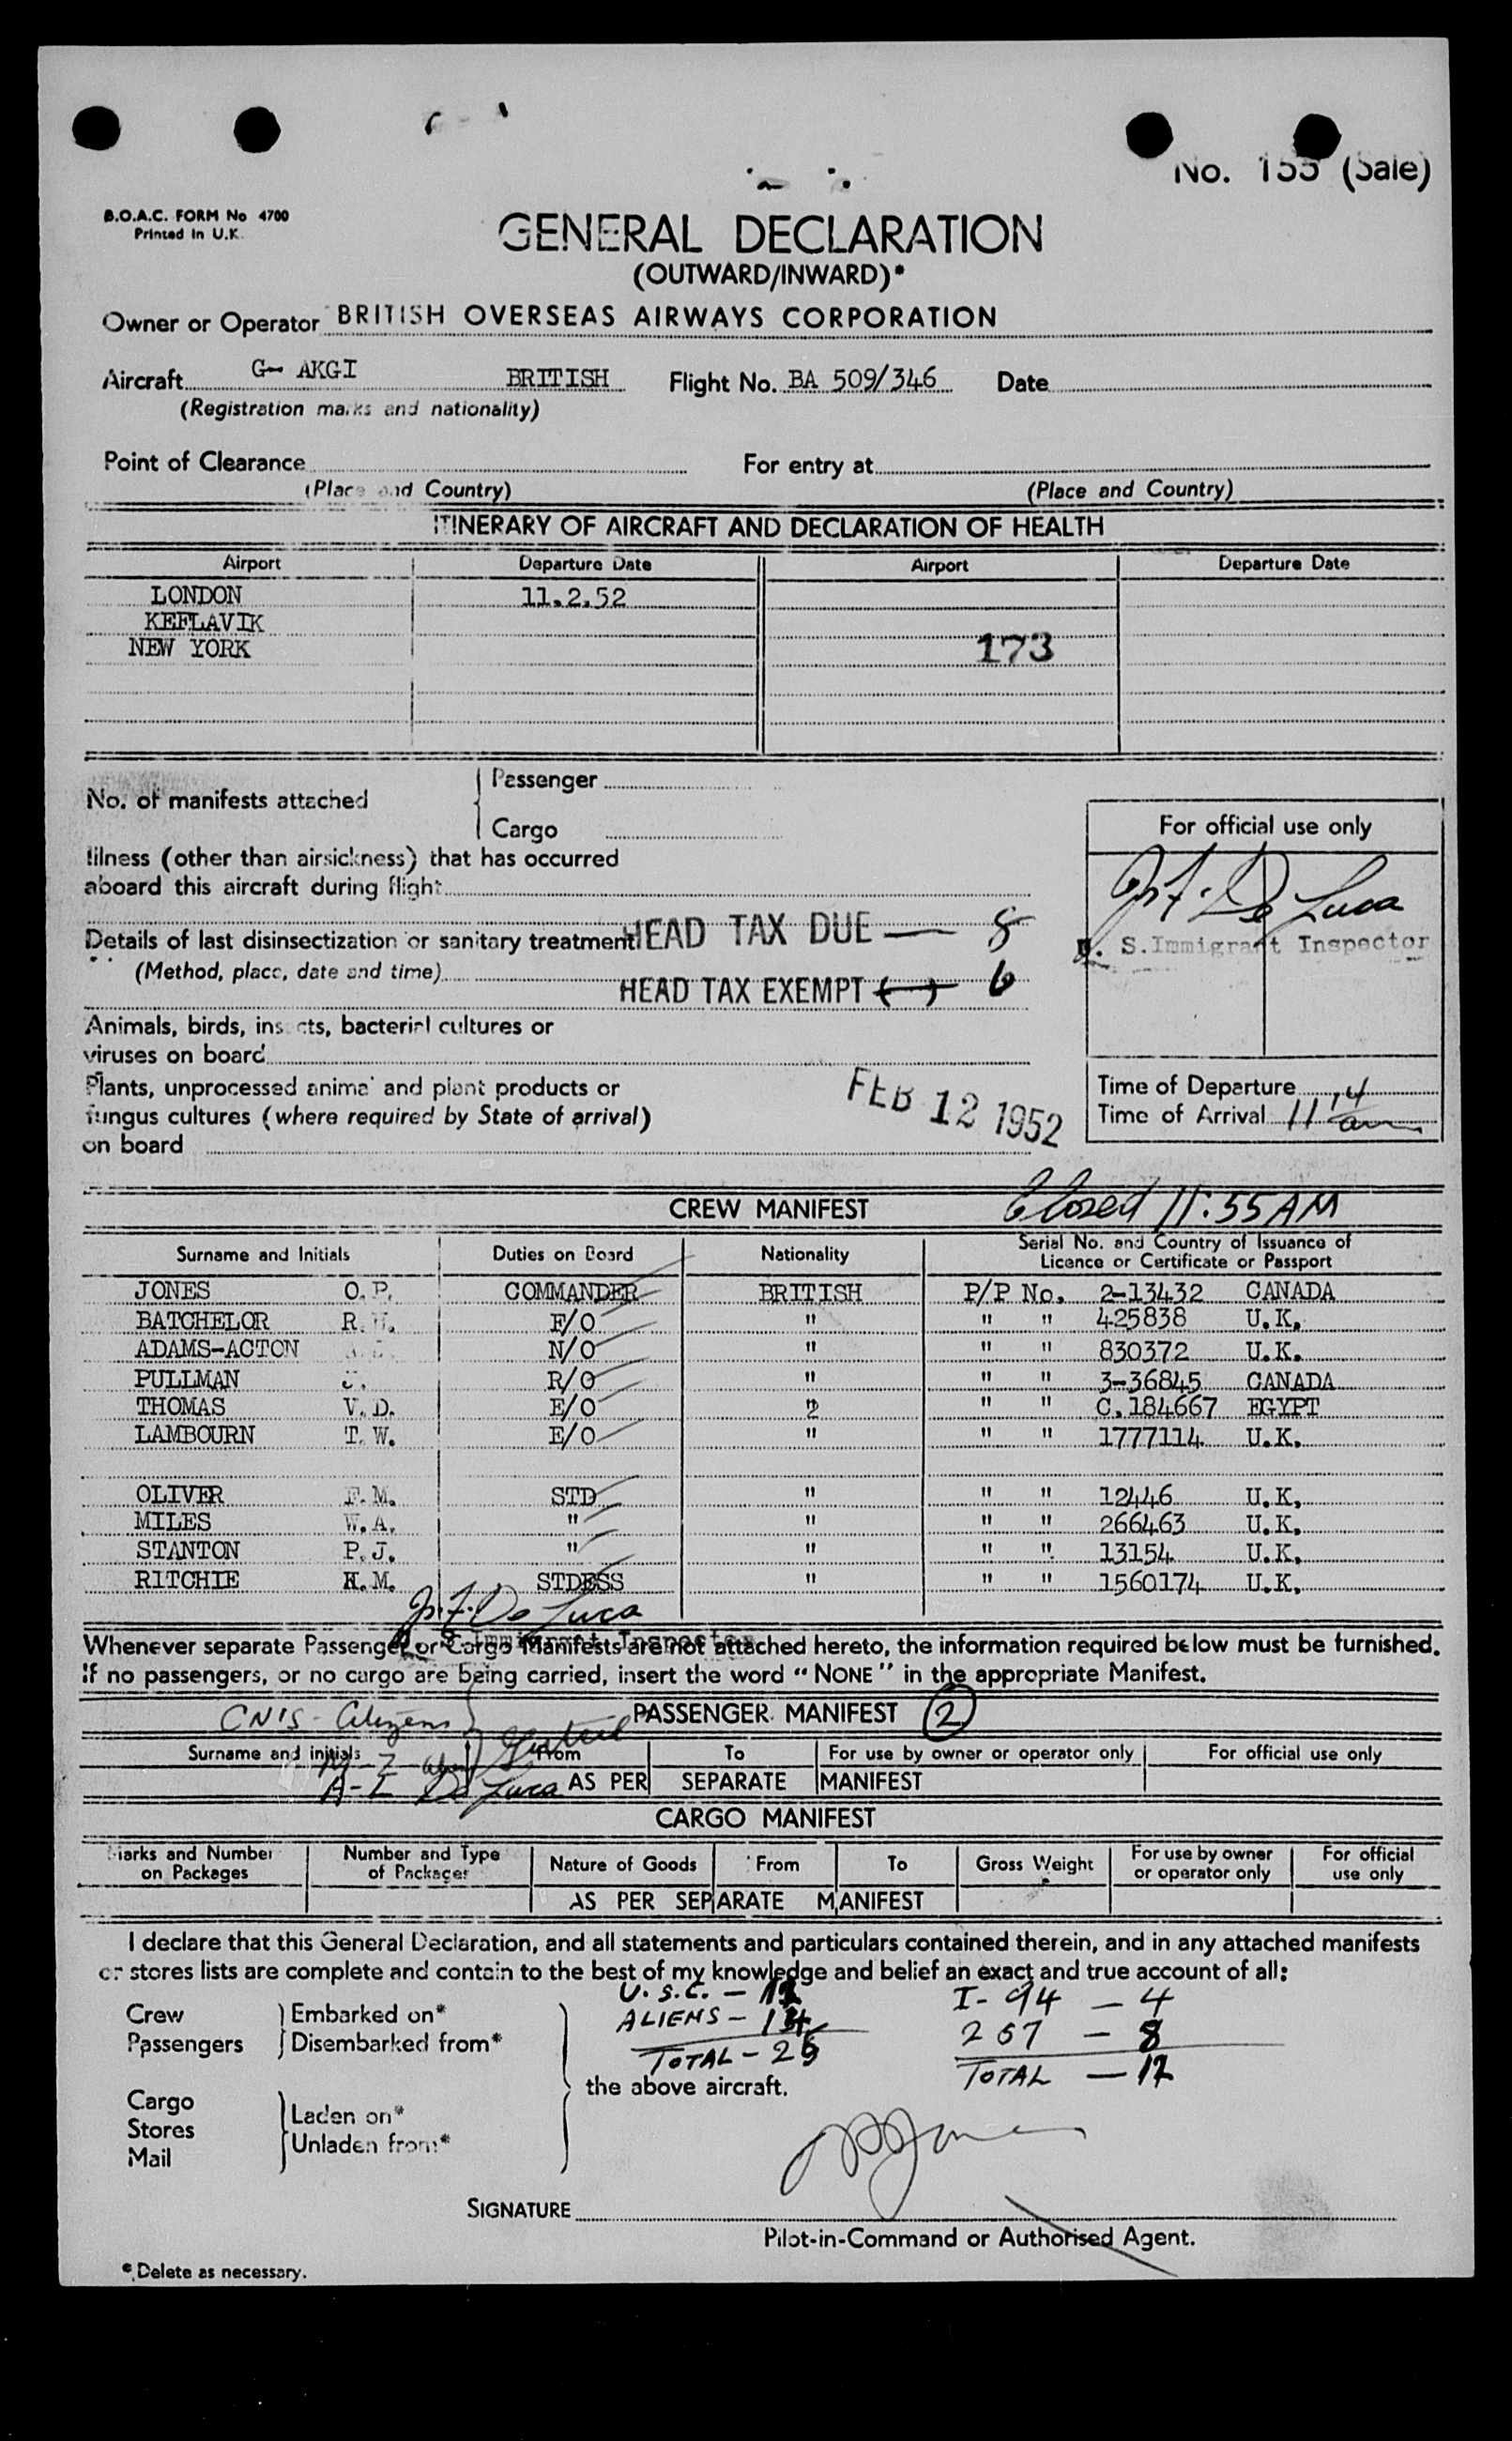 No. 155 (Sale)
B.O.A.C. FORM No 4700
Printed in U.K.
GENERAL DECLARATION
(OUTWARD/INWARD)*
Owner or Operator BRITISH OVERSEAS AIRWAYS CORPORATION
Aircraft G- AKGI BRITISH Flight No. BA 509/346 Date
(Registration marks and nationality)
Point of Clearance For entry at
(Place and Country) (Place and Country)
ITINERARY OF AIRCRAFT AND DECLARATION OF HEALTH
Airport Departure Date Airport Departure Date
LONDON 11.2.52
KEFLAVIK
NEW YORK 173
No. of manifests attached { Passenger
Cargo
For official use only
Illness (other than airsickness) that has occurred
aboard this aircraft during flight
J. F. De Luca
U. S. Immigrant Inspector
HEAD TAX DUE — 8
Details of last disinsectization or sanitary treatment
(Method, place, date and time)
HEAD TAX EXEMPT ( ) 6
Animals, birds, insects, bacterial cultures or
viruses on board
Plants, unprocessed animal and plant products or
fungus cultures (where required by State of arrival)
on board
FEB 12 1952
Time of Departure
Time of Arrival 11 14 am
CREW MANIFEST Closed 11:55 AM
Surname and Initials Duties on Board Nationality Serial No. and Country of Issuance of Licence or Certificate or Passport
JONES O. P. COMMANDER BRITISH P/P No. 2-13432 CANADA
BATCHELOR R. F/O " " " 425838 U.K.
ADAMS-ACTON N/O " " " 830372 U.K.
PULLMAN J. R/O " " " 3-36845 CANADA
THOMAS V.D. E/O " " " C.184667 EGYPT
LAMBOURN T.W. E/O " " " 1777114 U.K.
OLIVER F.M. STD " " " 12446 U.K.
MILES W.A. " " " " 266463 U.K.
STANTON P.J. " " " " 13154 U.K.
RITCHIE K.M. STDESS " " " 1560174 U.K.
J. F. De Luca
Immigrant Inspector
Whenever separate Passenger or Cargo Manifests are not attached hereto, the information required below must be furnished.
If no passengers, or no cargo are being carried, insert the word "NONE" in the appropriate Manifest.
CN'S - Citizens
PASSENGER MANIFEST 2
Surname and initials From To For use by owner or operator only For official use only
M-Z
A-L De Luca
AS PER SEPARATE MANIFEST
CARGO MANIFEST
Marks and Number on Packages Number and Type of Packages Nature of Goods From To Gross Weight For use by owner or operator only For official use only
AS PER SEPARATE MANIFEST
I declare that this General Declaration, and all statements and particulars contained therein, and in any attached manifests
or stores lists are complete and contain to the best of my knowledge and belief an exact and true account of all:
U.S.C. - 12 I-94 - 4
Crew } Embarked on* ALIENS - 14 257 - 8
Passengers } Disembarked from* TOTAL - 26 TOTAL - 12
the above aircraft.
Cargo
Stores } Laden on*
Mail } Unladen from*
OPJones
SIGNATURE
Pilot-in-Command or Authorised Agent.
*Delete as necessary.